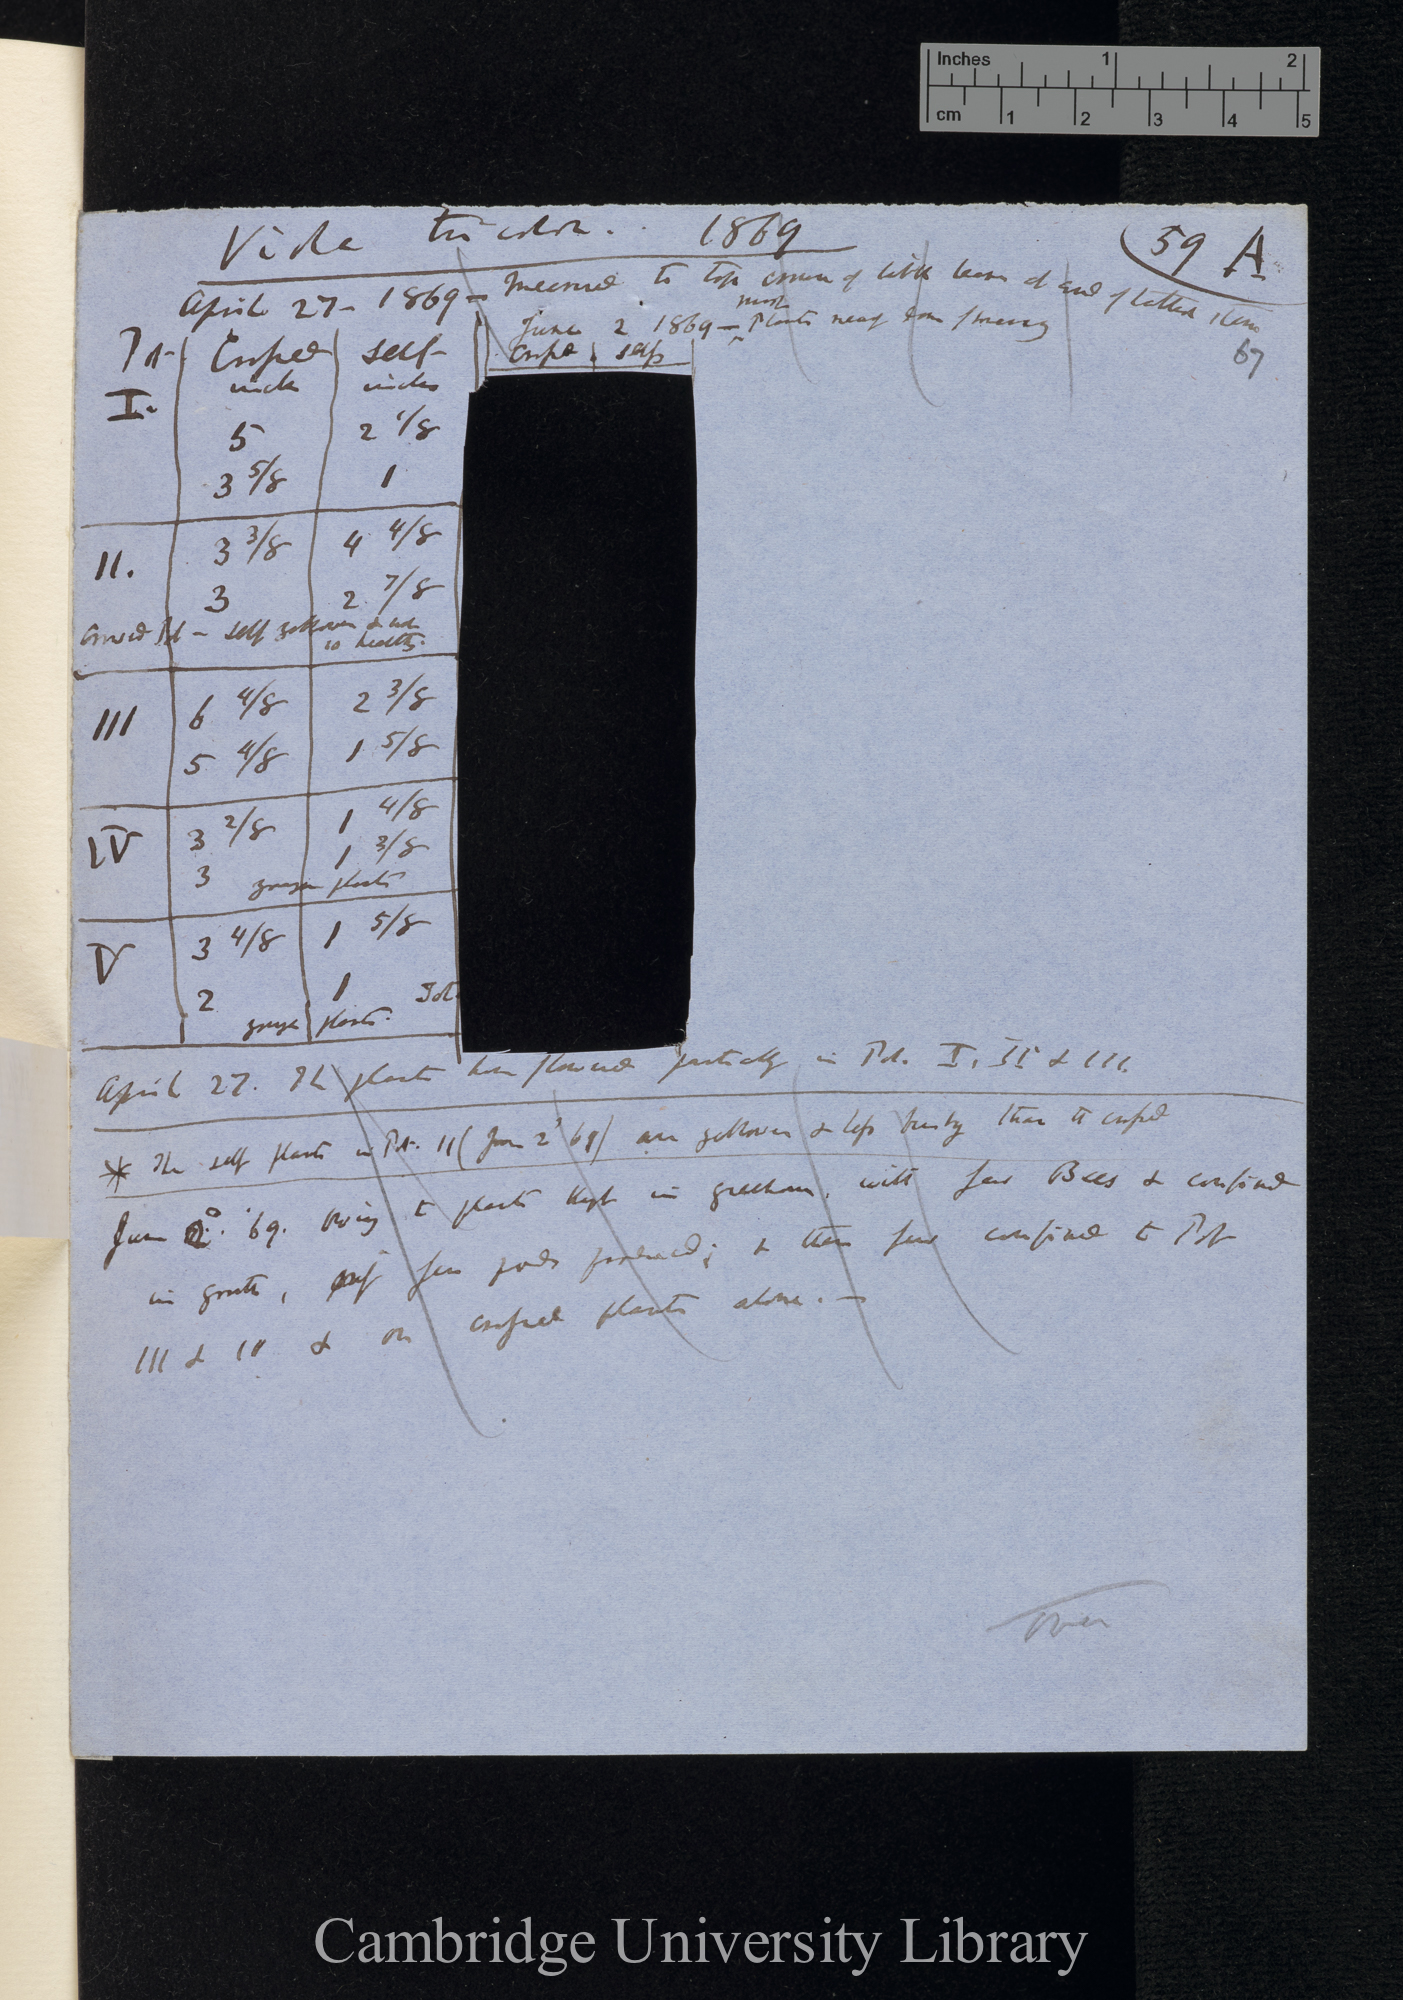 Inches 1 2
cm 1 2 3 4 5
Viola tricolor. 1869
59 A
April 27 - 1869 - Measured to top of little leaves at end of tallest stem
June 2 1869 - most Plants nearly done flowering
67
Pot Crossed Self Crossed selfs
I. inches inches
5 2 1/8
3 5/8 1
II. 3 3/8 4 4/8
3 2 7/8
Crowded Pot - self yellower & not
so healthy.
III 6 4/8 2 3/8
5 4/8 1 5/8
IV 3 2/8 1 4/8
3 1 3/8
younger plants
V 3 4/8 1 5/8
2 1
younger plants.
April 27. The plants have flowered partially in Pot. I, II & III.
* The self plants in Pot. II (June 2' 69) are yellower & less bushy than the crossed
June 2° '69. Owing to plants kept in greenhouse, with few Bees & confined
in growth, only few pods produced; & these few confined to Pots
III & IV & on crossed plants alone. —
Over
Cambridge University Library